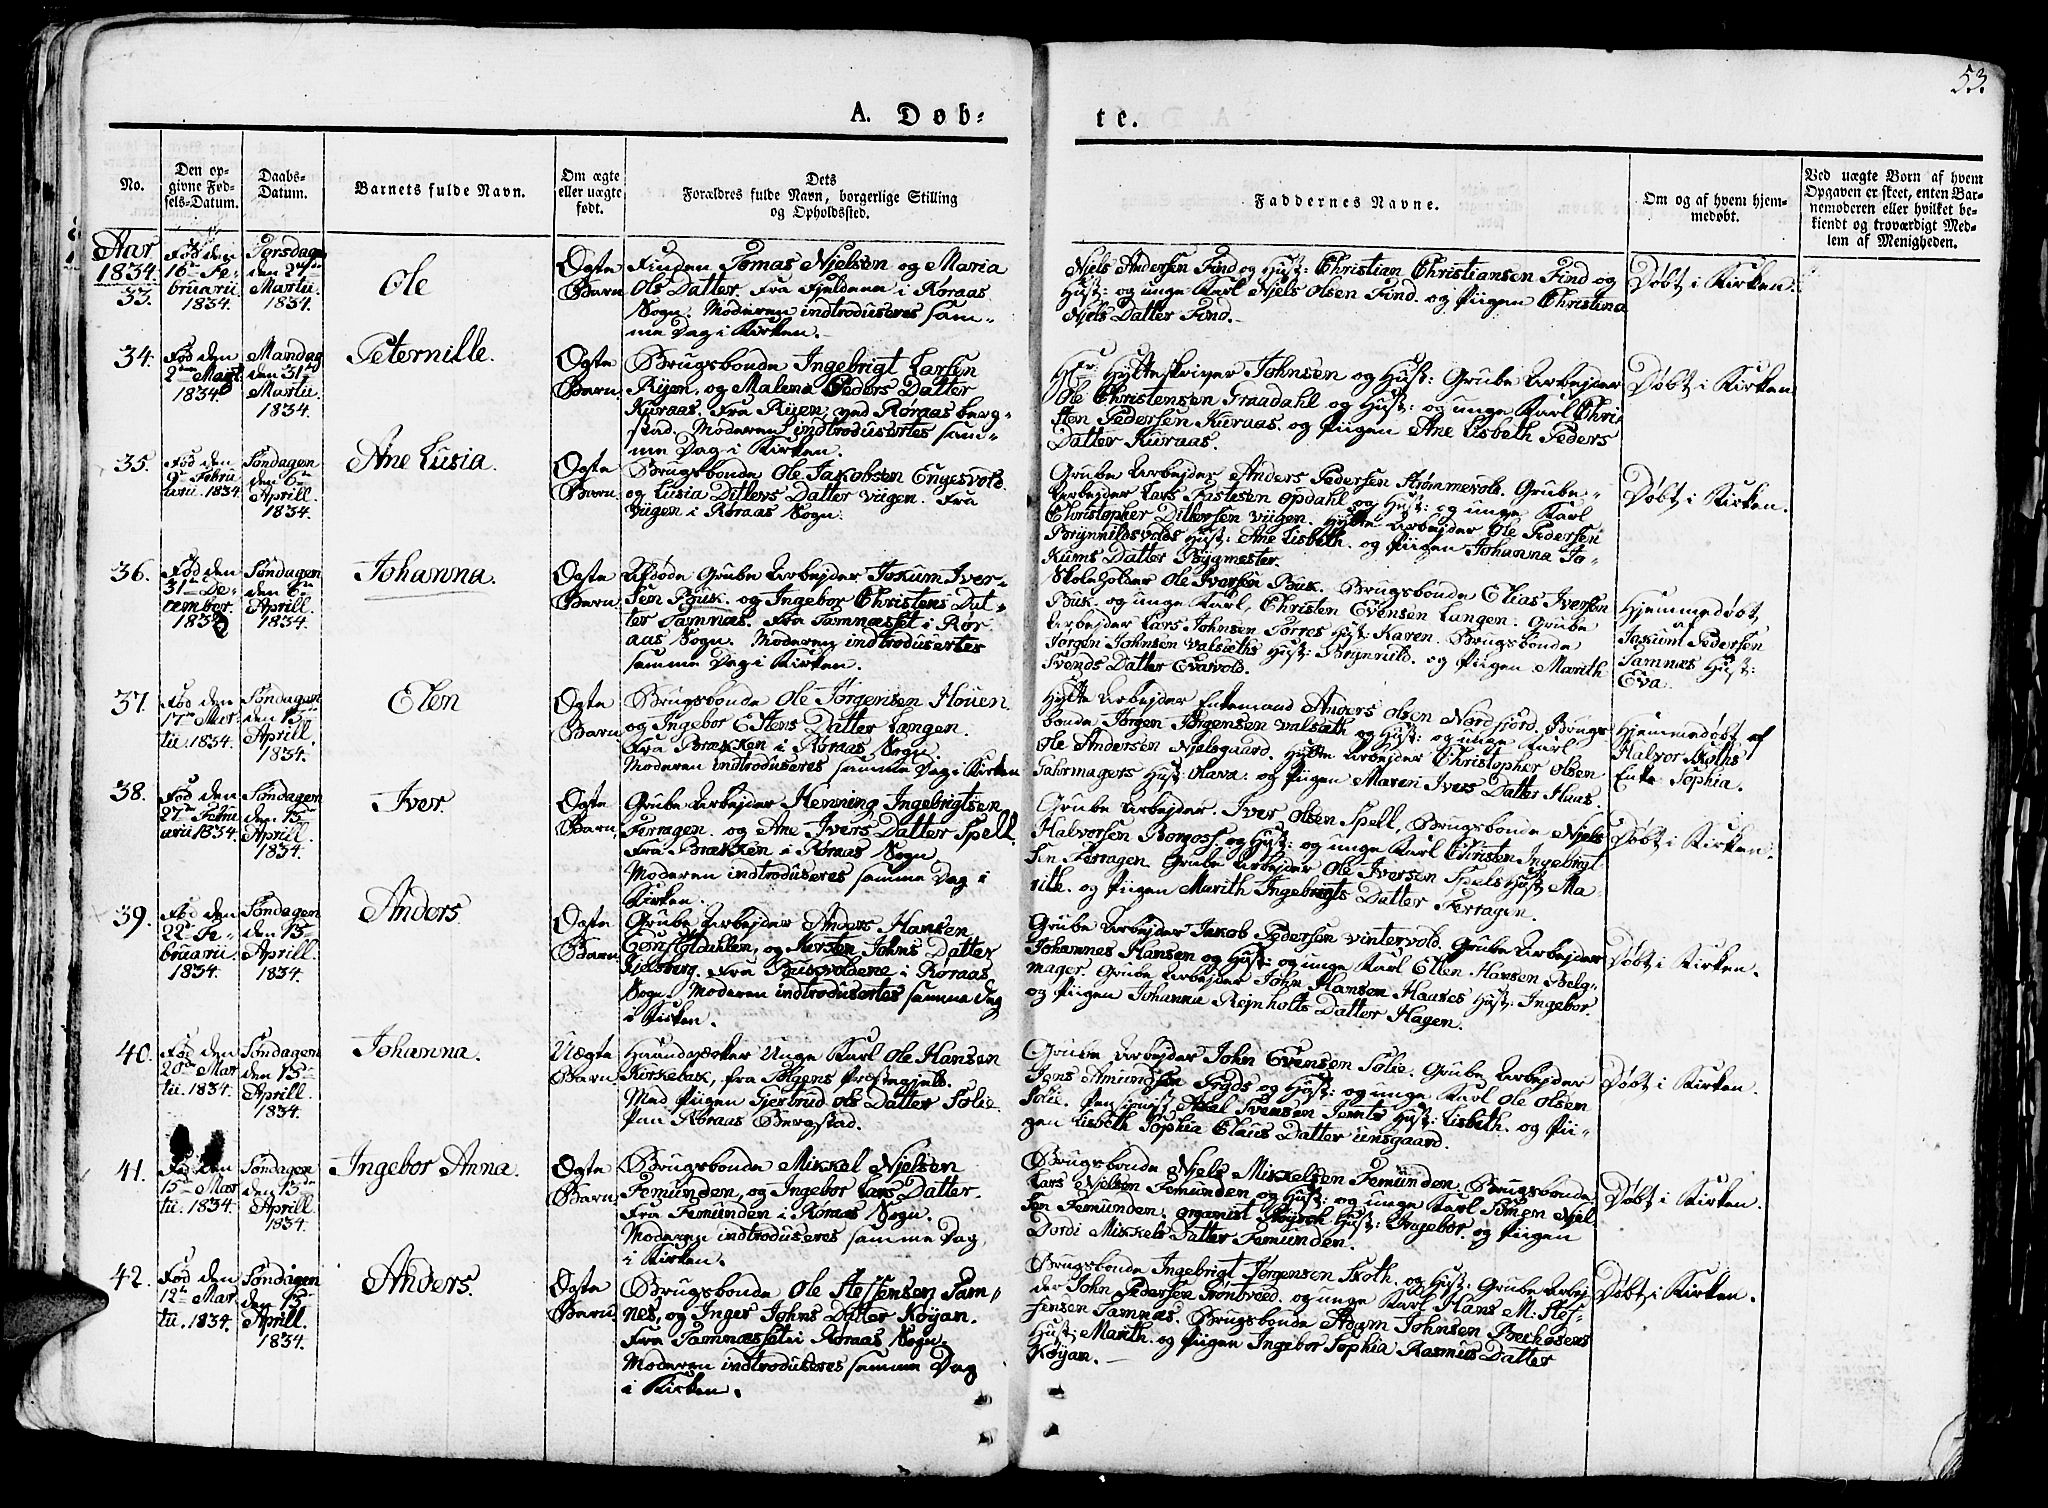 53.
A. Døb-
te.
No.
Den op-
givne Fød-
sels-Datum.
Daabs-
Datum.
Barnets fulde Navn.
Om ægte
eller uægte
født.
Dets
Forældres fulde Navn, borgerlige Stilling
og Opholdssted.
Faddernes Navne.
Om og af hvem hjem-
medøbt.
Ved uægte Born af hvem
Opgaven er skeet, enten Bar-
nemoderen eller hvilket be-
kiendt og troværdigt Med-
lem af Menigheden.
Aar
1834.
33.
Fød den
16de Fe-
bruarii
1834.
Torsdagen
den 27de
Martii
1834.
Ole
Ægte
Barn
Finden Tomas Njelsen og Maria
Ols Datter fra Fjeldene i Røraas
Sogn. Moderen indtroduseres sam-
me Dag i Kirken.
Njels Andersen Find og Hust: Christian Christiansen Find og
Hust: og unge Karl Njels Olsen Find. og Piigen Christina
Njels Datter Find.
Døbt i Kirken.
34.
Fød den
2den Marti
1834
Mandag
den 31te
Martii
1834.
Peternille.
Ægte
Barn
Brugsbonde Ingebrigt Larsen
Ryen. og Malena Peders Datter
Kuraas. Fra Ryen, ved Røraas berg-
stad. Moderen indtrodusertes sam-
me Dag i Kirken.
Hr. Hytteskriver Johnsen og Hust: Grube Arbejder
Ole Christensen Graadahl og Hust: og unge Karl Chri-
sten Pedersen Kuraas. og Piigen Ane Lisbeth Peders
Datter Kuraas.
Døbt i Kirken
35.
Fød den
9de Febru
arii. 1834
Søndagen
den 6te
Aprill
1834.
Ane Lusia.
Ægte
Barn.
Brugsbonde Ole Jakobsen Engesvold.
og Lusia Ditlevs Datter Viigen. Fra
Viigen i Røraas Sogn.
Grube Arbejder Anders Pedersen Strømmevold. Grube
Arbejder Lars Opdahl og Hust: og unge Karl
Christopher Ditlevsen Viigen. Hytte Arbejder Ole Pedersen
Brynnildsvolds Hust: Ane Lisbeth. og Piigen Johanna Jo-
kums Datter Bygmester.
Døbt i Kirken.
36.
Fød den
31te De-
cember.
1833
Søndagen
den 6te
Aprill
1834.
Johanna.
Ægte
Barn
Afdøde Grube Arbejder Jokum Iver-
sen Buk. og Ingebor Christens Dat-
ter Tamnæs. Fra Tamnæsset i Rør
aas Sogn. Moderen indtrodusertes
samme Dag i Kirken.
Skoleholder Ole Iversen Buk. Brugsbonde Elias Iversen
Buk. og unge Karl, Christen Evensen Langen. Grube
Arbejder Lars Johnsen Torres Hust: Karen. Brugsbonde
Jørgen Johnsen Valsæths Hust: Brynnild. og Piigen Marith
Svends Datter Evavold.
Hjemmedøbt
af
Jokum Pedersen
Tamnæs Hust:
Eva.
37.
Fød den
17de Mar
tii. 1834.
Søndagen
den 13de
Aprill.
1834.
Elen
Ægte
Barn.
Brugsbonde Ole Jørgensen Houen.
og Ingebor Estens Datter Langen.
Fra Brækken i Røraas Sogn
Moderen indtroduseres samme Dag i Kirken
Hytte Arbejder Enkemand Anders Olsen Nordfjord. Brugs
bonde Jørgen Jørgensen Valsæth og Hust: og unge Karl
Ole Andersen Njelsgaard. Hytte Arbejder Christopher Olsen
Fahrmagers Hust: Olava. og Piigen Maren Ivers Datter Haas.
Hjemmedøbt af
Halvor Skoths
Enke Sophia.
38.
Fød den
27de Febru
arii 1834.
Søndagen
den 13
Aprill.
1834.
Iver.
Ægte
Barn.
Grube Arbejder Henning Ingebrigtsen
Ferragen. og Ane Ivers Datter Spell.
Fra Brækken i Røraas Sogn
Moderen indtroduseres samme Dag i
Kirken.
Grube Arbejder. Iver Olsen Spell, Brugsbonde Njels
Halvorsen Borgos. og Hust: og unge Karl Christen Ingebrigt
sen Ferragen. Grube Arbejder Ole Iversen Spels Hust: Ma-
rith. og Piigen Marith Ingebrigts Datter Ferragen.
Døbt i Kirken.
39.
Fød den
22de Fe-
bruarii
1834.
Søndagen
den 13de
Aprill
1834.
Anders.
Ægte
Barn
Grube Arbejder Anders Hansen
og Kersten Johns Datter
Kjelsberg. Fra Bukvoldene i Røraas
Sogn. Moderen indtrodusertes samme Dag
i Kirken.
Grube Arbejder Jakob Pedersen Vintervold. Grube Arbejder
Johannes Hansen og Hust: og unge Karl Ellen Hansen Belg-
mager. Grube Arbejder John Hansen Haases Hust: Ingebor.
og Piigen Johanna Rejnholts Datter Hagen.
Døbt i Kirken.
40.
Fød den
20de Mar
tii. 1834.
Søndagen
den 13de
Aprill.
1834.
Johanna.
Uægte
Barn.
Haandverker Unge Karl Ole Hansen
Kirkebak, fra Tolgens Præstegjeld.
Med Piigen Gjertrud Ols Datter Solie
Paa Røraas Bergstad.
Grube Arbejder John Evensen Solie. Grube Arbejder
Jens Amundsen og Hust: og unge Karl Ole Olsen
Solie. Pensjonist Axel Svensen Jemts Hust: Lisbeth. og Pii-
gen Lisbeth Sophia Claus Datter Unsgaard.
Døbt i Kirken.
41.
Fød den
15de Mar
tii. 1834.
Søndagen
den 13de
Aprill.
1834.
Ingebor Anna.
Ægte
Barn.
Brugsbonde Mikkel Njelsen
Femunden, og Ingebor Lars Datter.
Fra Femunden i Røraas Sogn.
Moderen indtroduseres samme Dag,
i Kirken.
Brugsbonde Njels Mikkelsen Femunden, Brugsbonde
Lars Njelsen Femunden og Hust: og unge Karl Simen Njel
sen Femunden. Organist Hust: Ingebor. og Piigen
Dordi Mikkels Datter Femunden.
Døbt i Kirken.
42.
Fød den
12te Mar
tii. 1834.
Søndagen
den 13de
Aprill
1834.
Anders.
Ægte
Barn
Brugsbonde Ole Steffensen Tam-
nes, og Inger Johns Datter Køjan.
Fra Tamnæsset i Røraas Sogn.
Moderen indtroduseres samme Dag
i Kirken.
Brugsbonde Ingebrigt Jørgensen Skoth. og Hust: Grube Arbej-
der John Pedersen Trøntvied. og unge Karl Hans M. Stef-
fensen Tamnæs. Brugsbonde Adam Johnsen Bechosens
Hust: Marith. og Piigen Ingebor Sophia Rasmus Datter
Køjan.
Døbt i Kirken.